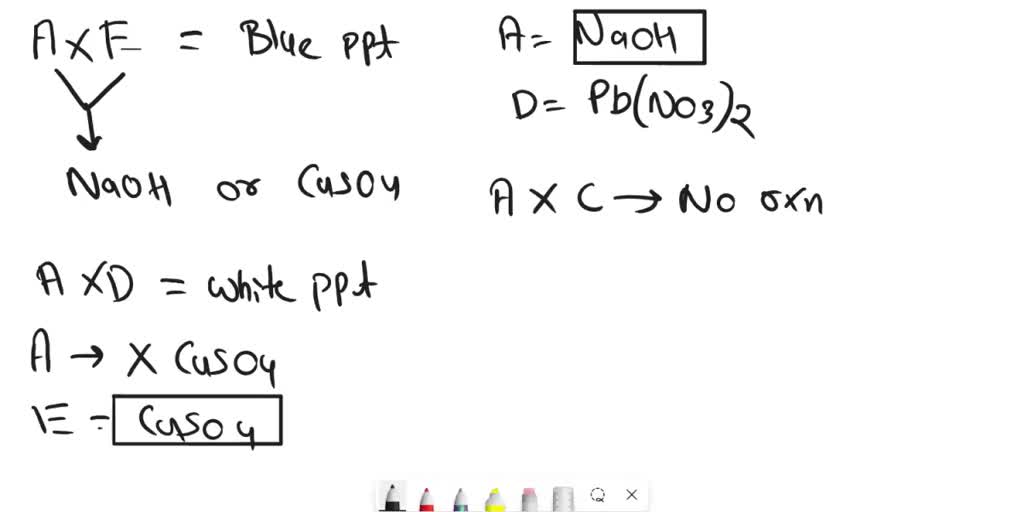 A X E = Blue ppt
NaOH or CuSO4
A X D = white ppt
A → X CuSO4
E = CuSO4
A = NaOH
D = Pb(NO3)2
A X C → No rxn